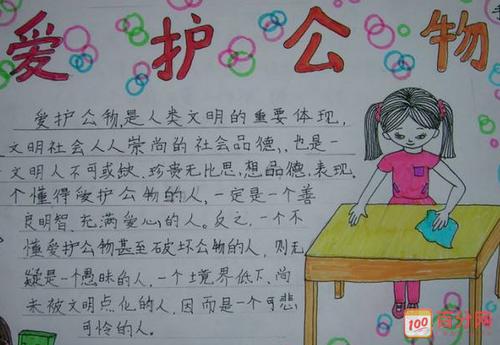 爱护公物
爱护公物,是人类文明的重要体现,
文明社会人人崇尚的社会品德,、也是一
文明人不可或缺、珍贵无比思,想品德、表现,
个懂得爱护公物的人,一定是一个善
良明智、充满爱心的人。反之,一个不
懂爱护公物甚至破坏公物的人,则无
疑是一个愚昧的人,一个土境界低下、尚
未被文明点化的人,因而是一个可悲
可怜的人。
100
百分网